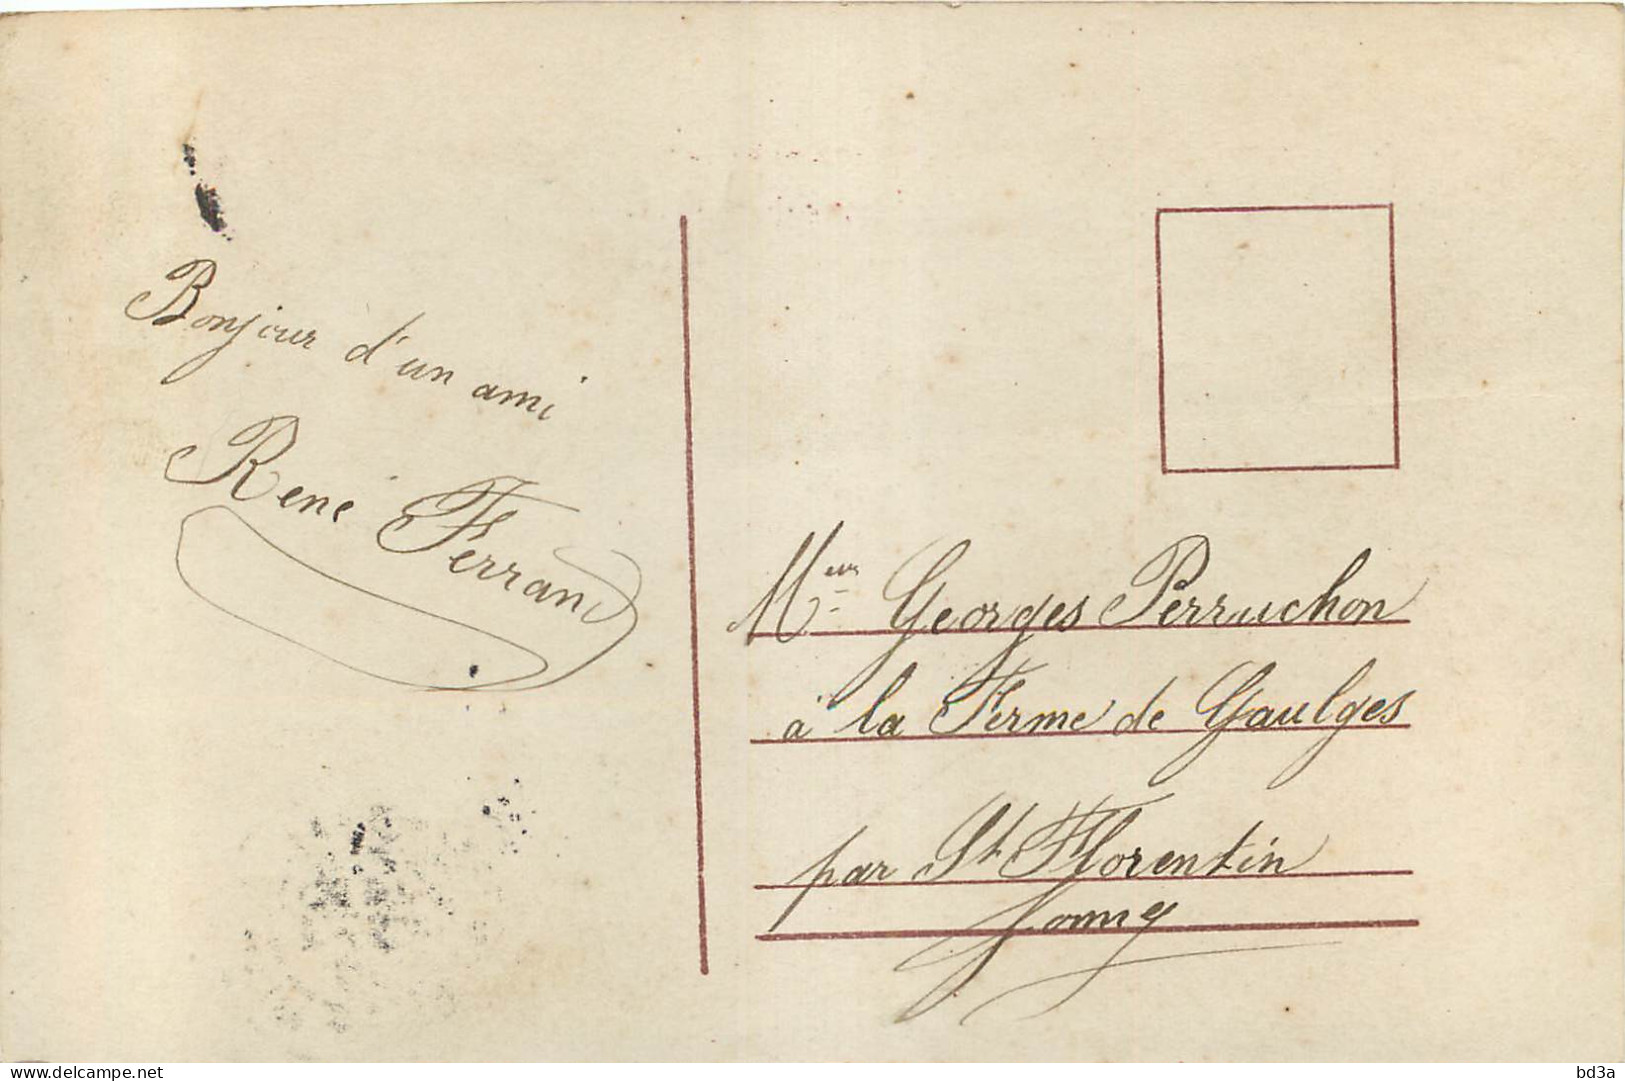 Bonjour d'un ami
René Ferrand
Meur Georges Perruchon
à la Ferme de Gaulges
par St Florentin
Yonne
www.delcampe.net
bd3a